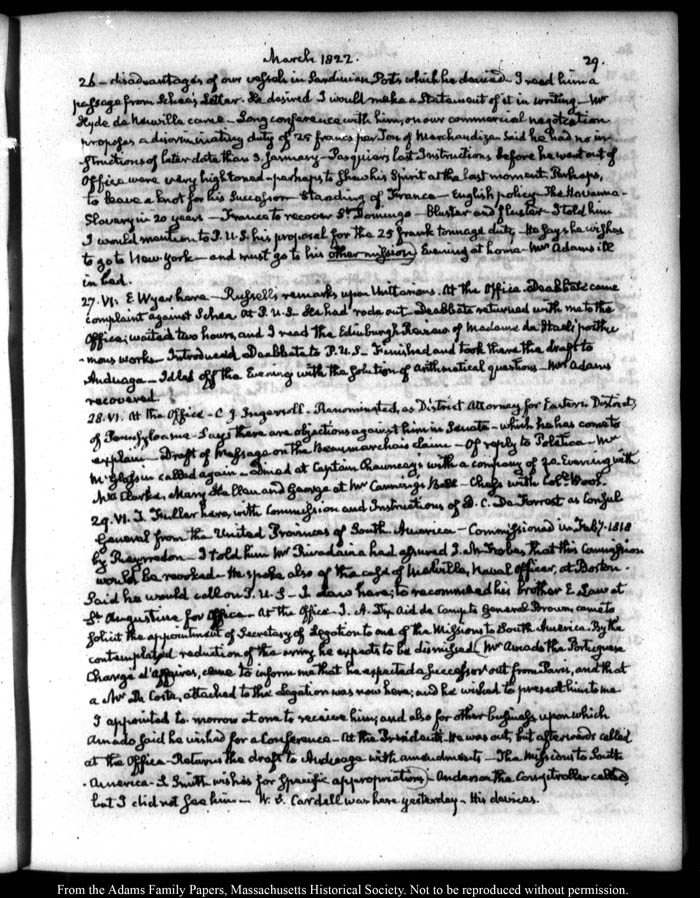 March 1822. 29.
26 - disadvantages of our vessels in Sardinian Ports which he denied - I read him a
passage from Schea's Letter. He desired I would make a Statement of it in writing - Mr
Hyde de Neuville came - Long conference with him, on our commercial negotiation
proposes a discriminating duty of 25 francs per Ton of Merchandize. Said he had no in-
structions of later date than 3. January - Pasquier's last Instructions before he went out of
Office were very high toned - perhaps to shew his Spirit at the last moment. Perhaps,
to leave a knot for his Successor. Standing of France - English policy - The Havanna -
Slavery in 20 years - France to recover St. Domingo - Bluster and fluster - I told him
I would mention to P.U.S. his proposal for the 25 frank tonnage duty - He says he wishes
to go to New York - and must go to his other mission) Evening at home - Mrs Adams ill
in bed.
27. VI: E Wyer here - Russell's remarks upon Unitarians. At the Office. Deabbate came
complaint against Schea. At P.U.S. He had rode out. Deabbate returned with me to the
Office; waited two hours, and I read the Edinburgh Review of Madame de Stael's posthu
-mous works - Introduced Deabbate to P.U.S - Finished and took there the draft to
Anduaga - Idled off the Evening with the solution of arithmetical questions - Mrs Adams
recovered.
28. VI. At the Office - C. J. Ingersoll. Renominated, as District Attorney for Eastern District,
of Pennsylvania - Says there are objections against him in Senate - which he has come to
explain - Draft of Message on the Beaumarchais claim - Of reply to Poletica - Mr
called again - Dined at Captain with a company of 20 Evening with
Mrs Clarke, Mary Hellen and George at Mr Canning's Ball - Chess with Coll. Wool.
29. VI. J. Fuller here, with Commission and Instructions of D. C. De Forrest as Consul
General from the United Provinces of South America - Commissioned in Feby. 1818
by Pueyrredon - I told him Mr Rivadavia had assured J. M. Forbes that this Commission
would be revoked - He spoke also of the case of Melville, Naval Officer, at Boston.
Said he would call on P.U.S - J. Law here; to recommend his brother E. Law at
St Augustine for Office - At the Office - J. A. Dix Aid de Camp to General Brown, came to
solicit the appointment of Secretary of Legation to one of the Missions to South America. By the
contemplated reduction of the army he expects to be dismissed. Mr Amado the Portuguese
Chargé d'affaires, came to inform me that he expected a Successor out from Paris, and that
a Mr Da Costa, attached to the Legation was now here; and he wished to present him to me.
I appointed to morrow at one to receive him; and also for other business upon which
Amado said he wished for a Conference - At the President's. He was out, but afterwards called
at the Office - Returns the draft to Anduaga with amendments - The Missions to South
-America - S. Smith wishes for specific appropriations) Anderson the Comptroller called,
but I did not see him - W. S. Cardell was here yesterday - His devices.
From the Adams Family Papers, Massachusetts Historical Society. Not to be reproduced without permission.